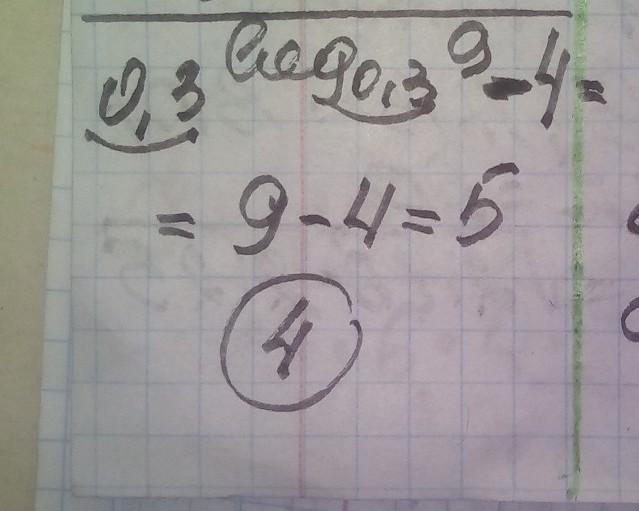 0,3 log0,3 9 - 4 =
= 9 - 4 = 5
4